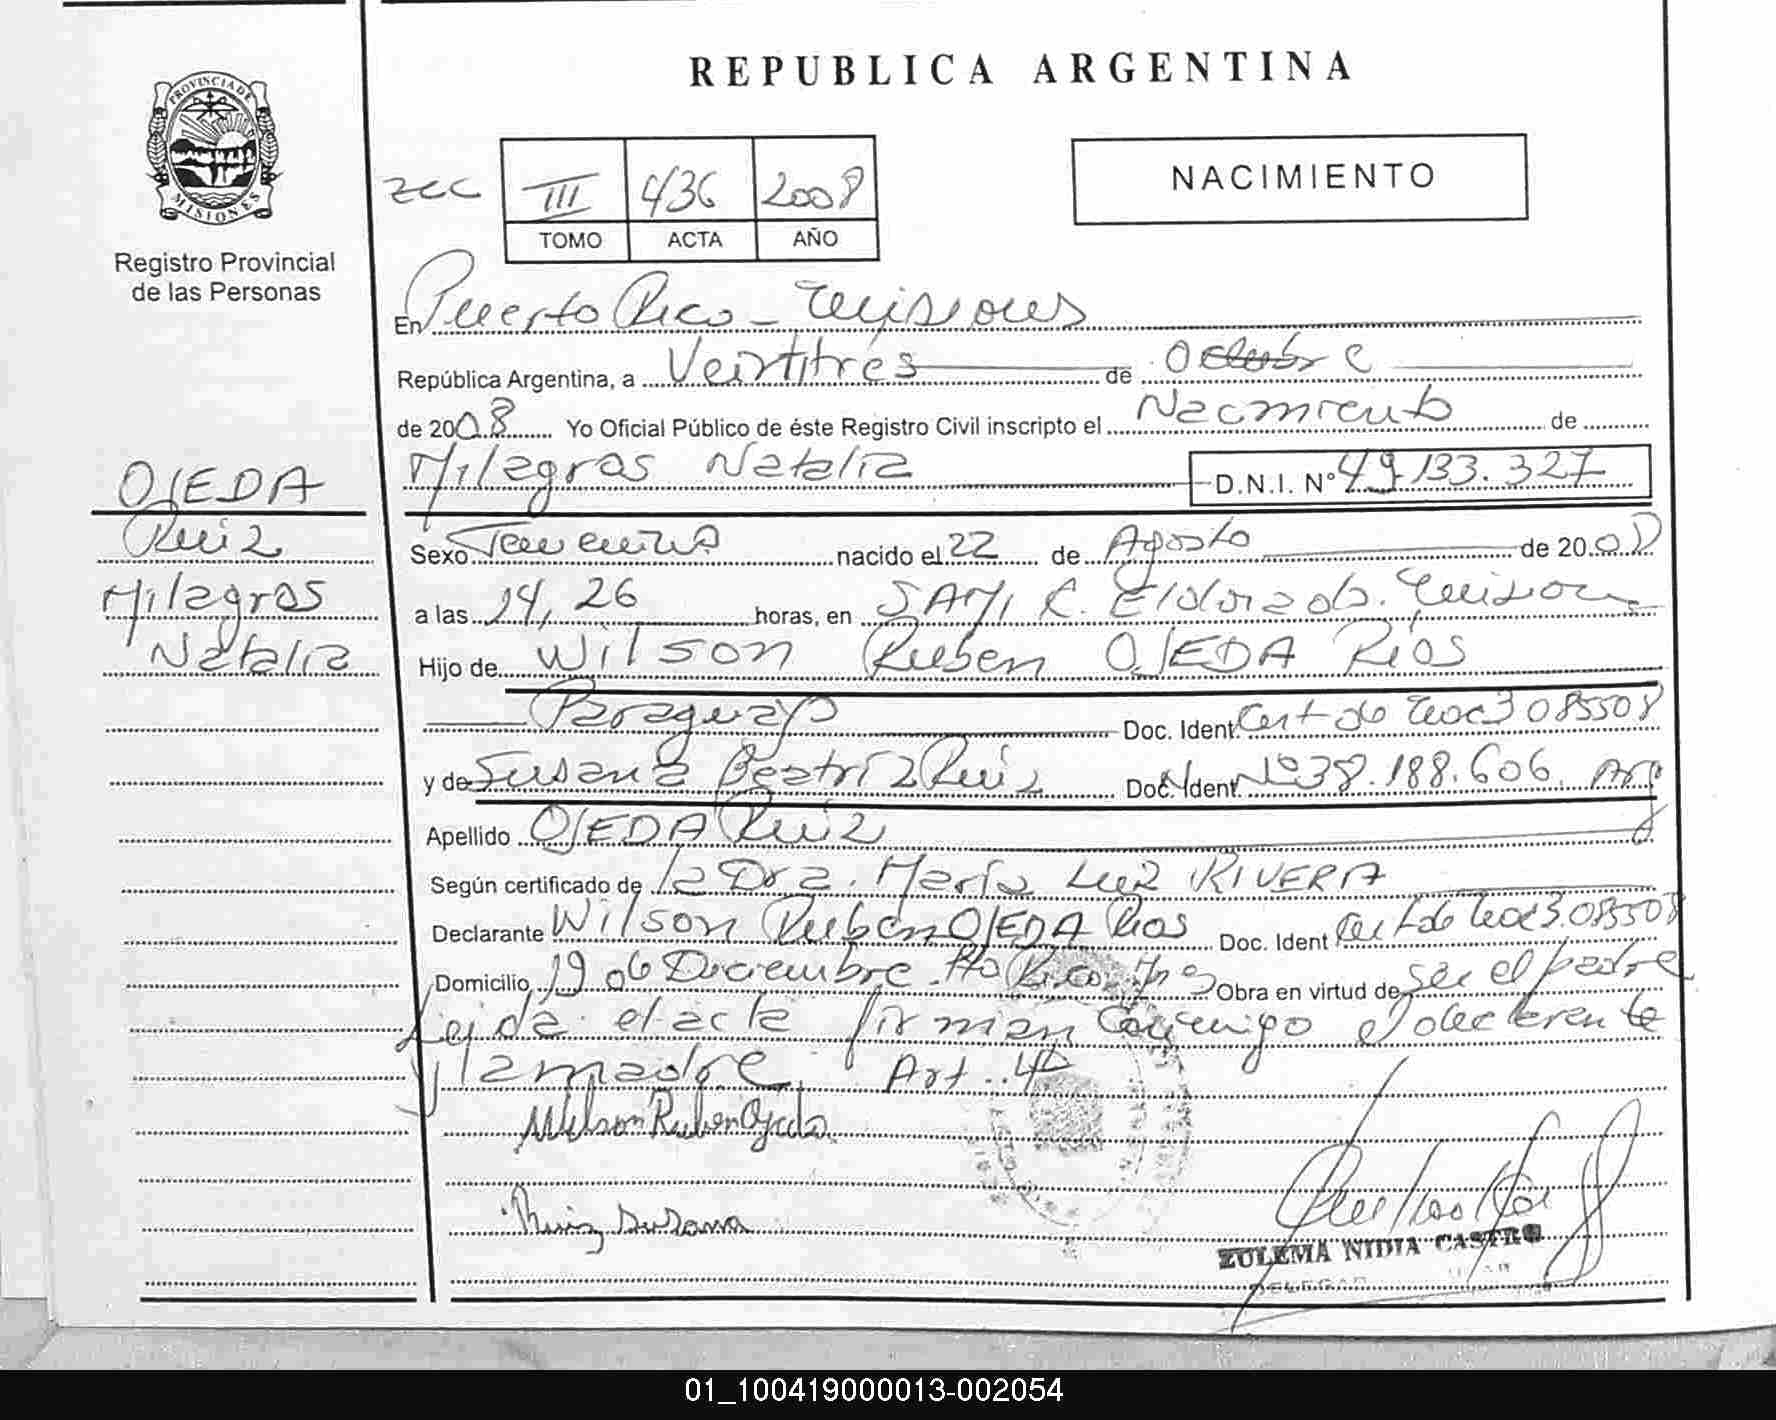 PROVINCIA DE
MISIONES
Registro Provincial
de las Personas
OJEDA
Ruiz
Milagros
Natalia
REPUBLICA ARGENTINA
III 436 2008
TOMO ACTA AÑO
NACIMIENTO
En Puerto Rico - Misiones
República Argentina, a Veintitrés de Octubre
de 2008 Yo Oficial Público de éste Registro Civil inscripto el Nacimiento de
Milagros Natalia D.N.I. Nº 49.133.327
Sexo Femenino nacido el 22 de Agosto de 2008
a las 14,26 horas, en SAMIC. Eldorado. Misiones
Hijo de Wilson Ruben OJEDA Rios
Paraguayo Doc. Ident. Cert de 3085508
y de Susana Beatriz Ruiz Doc. Ident. Nº 38.188.606. Arg
Apellido OJEDA Ruiz
Según certificado de la Dra. María Luz RIVERA
Declarante Wilson Ruben OJEDA Rios Doc. Ident Cert de 3.085508
Domicilio 19 de Diciembre. Pto Rico. Mnes Obra en virtud de ser el padre
Leida el acta firman conmigo el declarante
y la madre. Art. 42
Wilson Ruben Ojeda
Ruiz Susana
ZULEMA NIDIA CASTRO
01_100419000013-002054